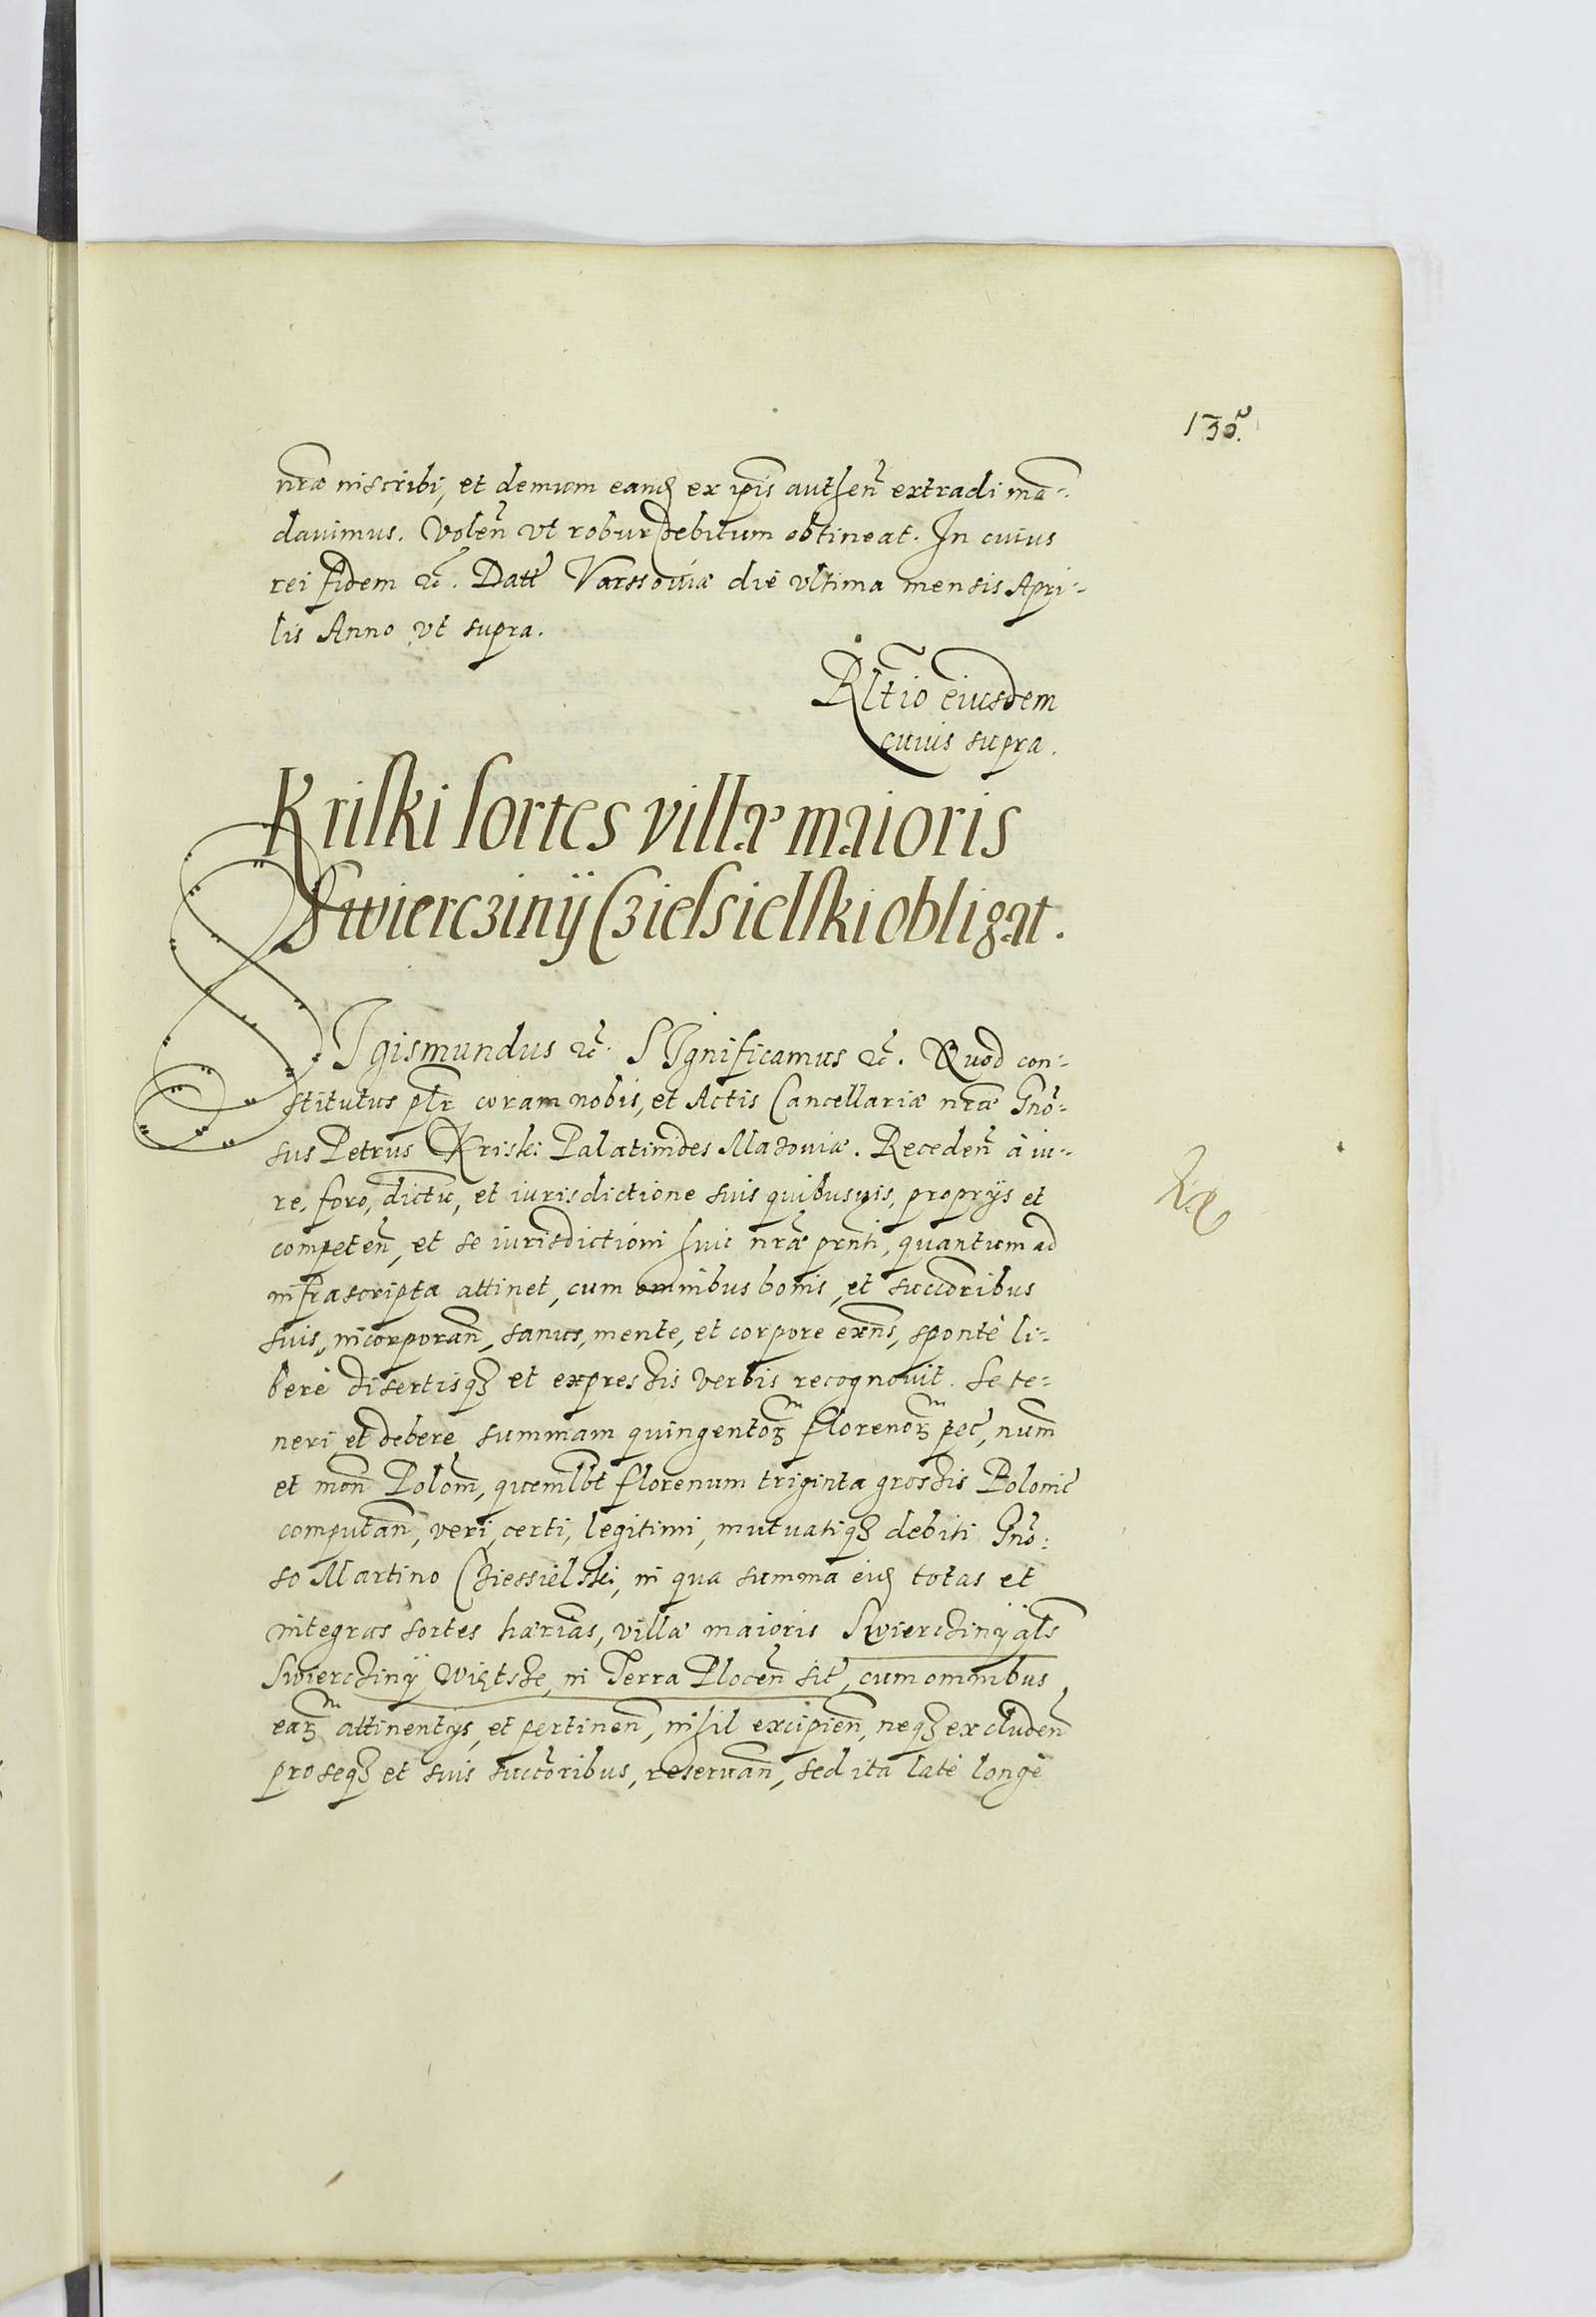 130.
nrae inscribi, et demum eand ex ipis authen extradi man-
davimus. Volen ut robur debitum obtineat. In cuius
rei fidem etc. Datt Varssoviae die ultima mensis Apri-
lis Anno ut supra.
Rltio eiusdem
cuius supra.
Kriski sortes villae maioris
Swiercziny Czielsielski obligat.
SIgismundus etc. SIgnificamus etc. Quod con-
stitutus pltr coram nobis, et Actis Cancellariae nrae Gno-
sus Petrus Kriski Palatinides Mazoviae. Receden à iu-
re, foro, dictu, et iurisdictione suis quibusvis, proprijs et
competen, et se iurisdictioni huic nrae prnti, quantum ad
infrascripta attinet, cum omnibus bonis, et succoribus
suis, incorporan, sanus, mente, et corpore exns, sponte li-
berè disertisq et expressis verbis recognovit. Se te-
neri et debere summam quingentor florenor pec, num
et mon Polon, quemlbt florenum triginta grossis Polonic
computan, veri, certi, legitimi, mutuatiq debiti Gno-
so Martino Cziessielski, in qua summa eid totas et
integras sortes haerias, villae maioris Swiercziny als
Swiercziny Więtsze, in Terra Plocen sit, cum omnibus
ear attinentijs, et pertinen, nihil excipien, neq excluden
pro seq et suis succoribus, reservan, sed ita latè longè